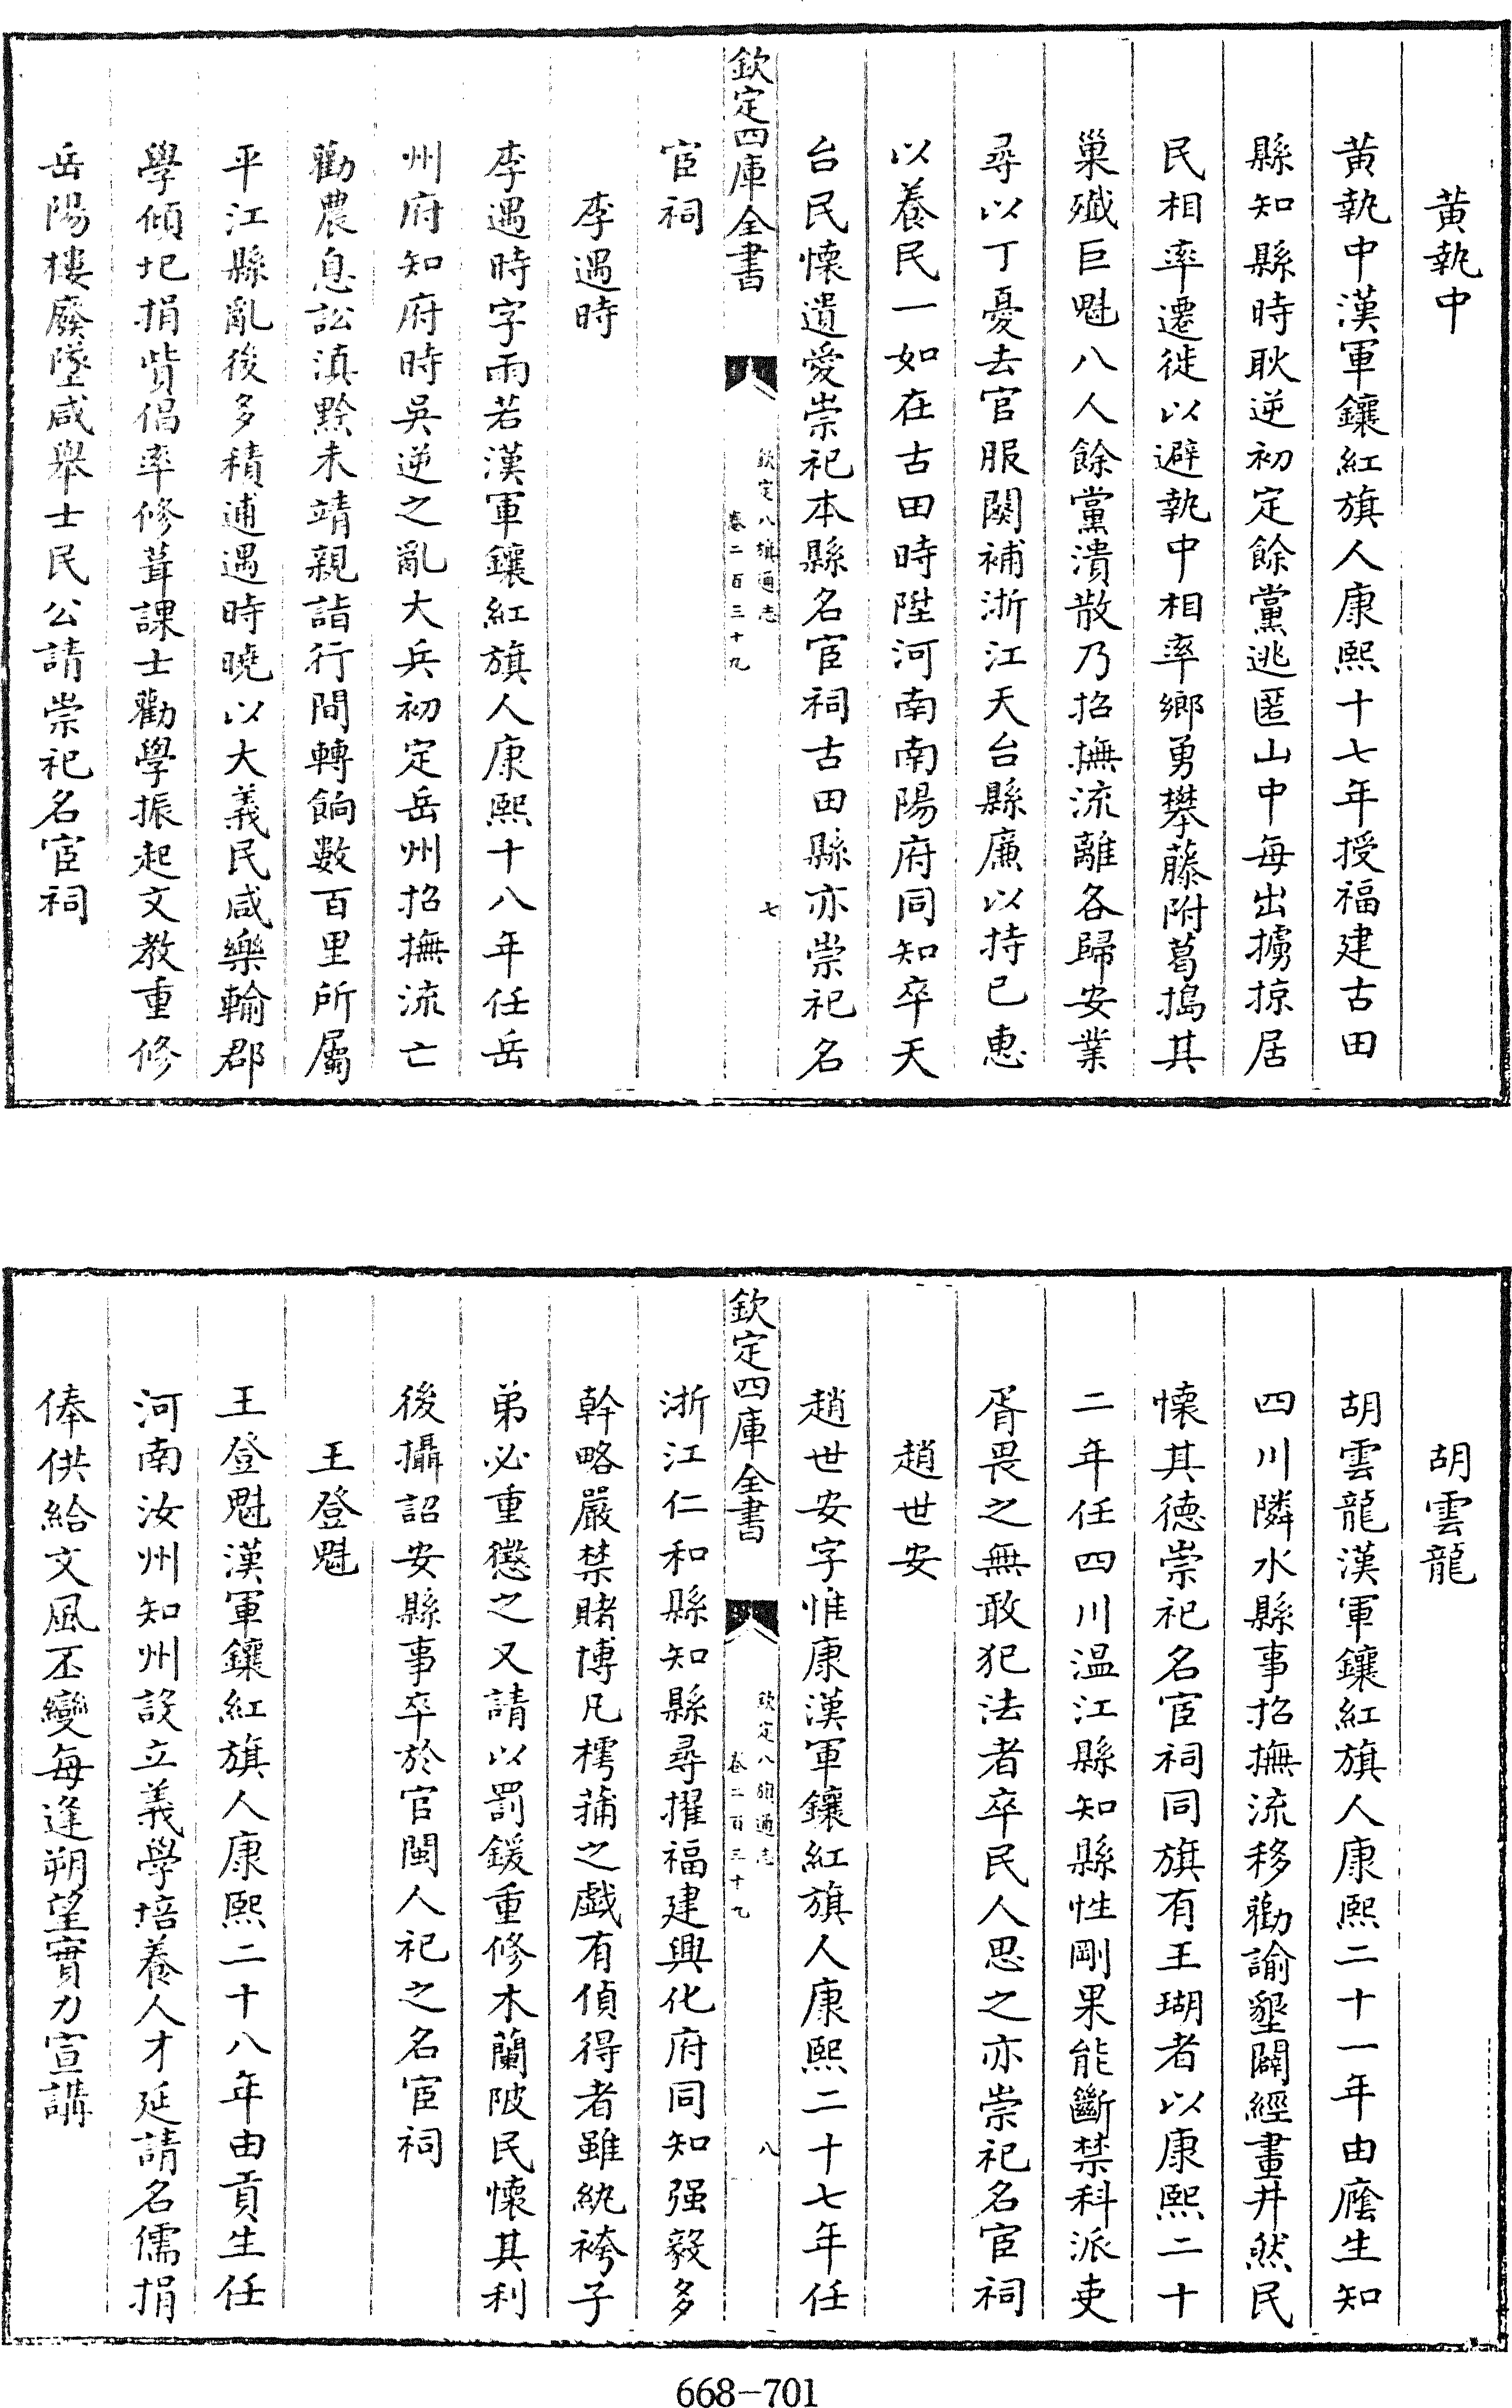 黄執中
黄執中漢軍鑲紅旗人康熙十七年授福建古田
縣知縣時耿逆初定餘黨逃匿山中每出擄掠居
民相率遷徙以避執中相率鄉勇攀藤附葛搗其
巢殲巨魁八人餘黨潰散乃招撫流離各歸安業
尋以丁憂去官服闋補浙江天台縣廉以持已惠
以養民一如在古田時陞河南南陽府同知卒天
台民懷遺愛崇祀本縣名宦祠古田縣亦崇祀名
欽定四庫全書
欽定八旗通志
卷二百三十九
七
宦祠
李遇時
李遇時字雨若漢軍鑲紅旗人康熙十八年任岳
州府知府時吳逆之亂大兵初定岳州招撫流亡
勸農息訟滇黔未靖親詣行間轉餉數百里所屬
平江縣亂後多積逋遇時曉以大義民咸樂輸郡
學傾圮捐貲倡率修葺課士勸學振起文教重修
岳陽樓廢墜咸舉士民公請崇祀名宦祠
胡雲龍
胡雲龍漢軍鑲紅旗人康熙二十一年由廕生知
四川隣水縣事招撫流移勸諭墾闢經畫井然民
懷其德崇祀名宦祠同旗有王瑚者以康熙二十
二年任四川温江縣知縣性剛果能斷禁科派吏
胥畏之無敢犯法者卒民人思之亦崇祀名宦祠
趙世安
趙世安字惟康漢軍鑲紅旗人康熙二十七年任
欽定四庫全書
欽定八旗通志
卷二百三十九
八
浙江仁和縣知縣尋擢福建興化府同知强毅多
幹略嚴禁賭博凡樗蒱之戲有偵得者雖紈袴子
弟必重懲之又請以罰鍰重修木蘭陂民懷其利
後攝詔安縣事卒於官閩人祀之名宦祠
王登魁
王登魁漢軍鑲紅旗人康熙二十八年由貢生任
河南汝州知州設立義學培養人才延請名儒捐
俸供給文風丕變每逢朔望實力宣講
668-701